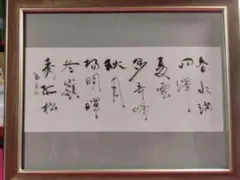 春水满
四泽
夏雲
多奇峰
秋月
揚明暉
冬嶺
秀孤松